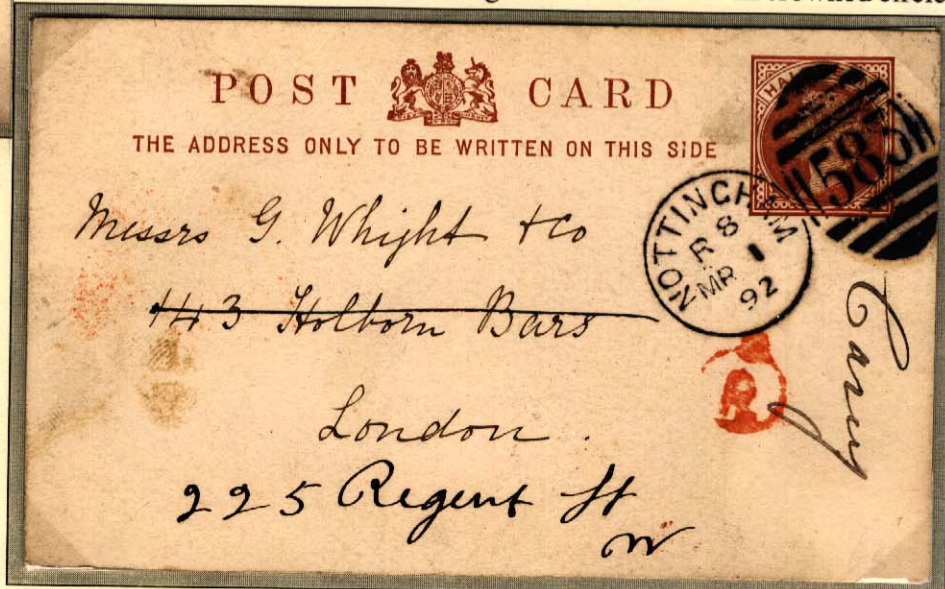 POST CARD
THE ADDRESS ONLY TO BE WRITTEN ON THIS SIDE
HAL
583
NOTTINGHAM
R 8
MR 1
92
Messrs G. Whight & Co
143 Holborn Bars
London.
225 Regent St
W